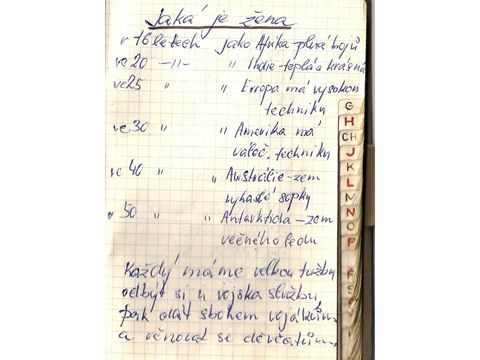 Jaká je žena
v 16 letech jako Afrika - plná bojů
ve 20 -"- " Indie - teplá a krásná
ve 25 " " Evropa má vysokou
techniku
ve 30 " " Amerika má
váleč. techniku
ve 40 " " Austrálie - zem
vyhaslé sopky
v 50 " " Antarktida - zem
věčného ledu
Každý máme velkou tužbu
odbýt si u vojska službu,
pak dát sbohem vojákům
a věnovat se děvčatům.
G
H
CH
J
K
L
M
N
O
P
Ř
S